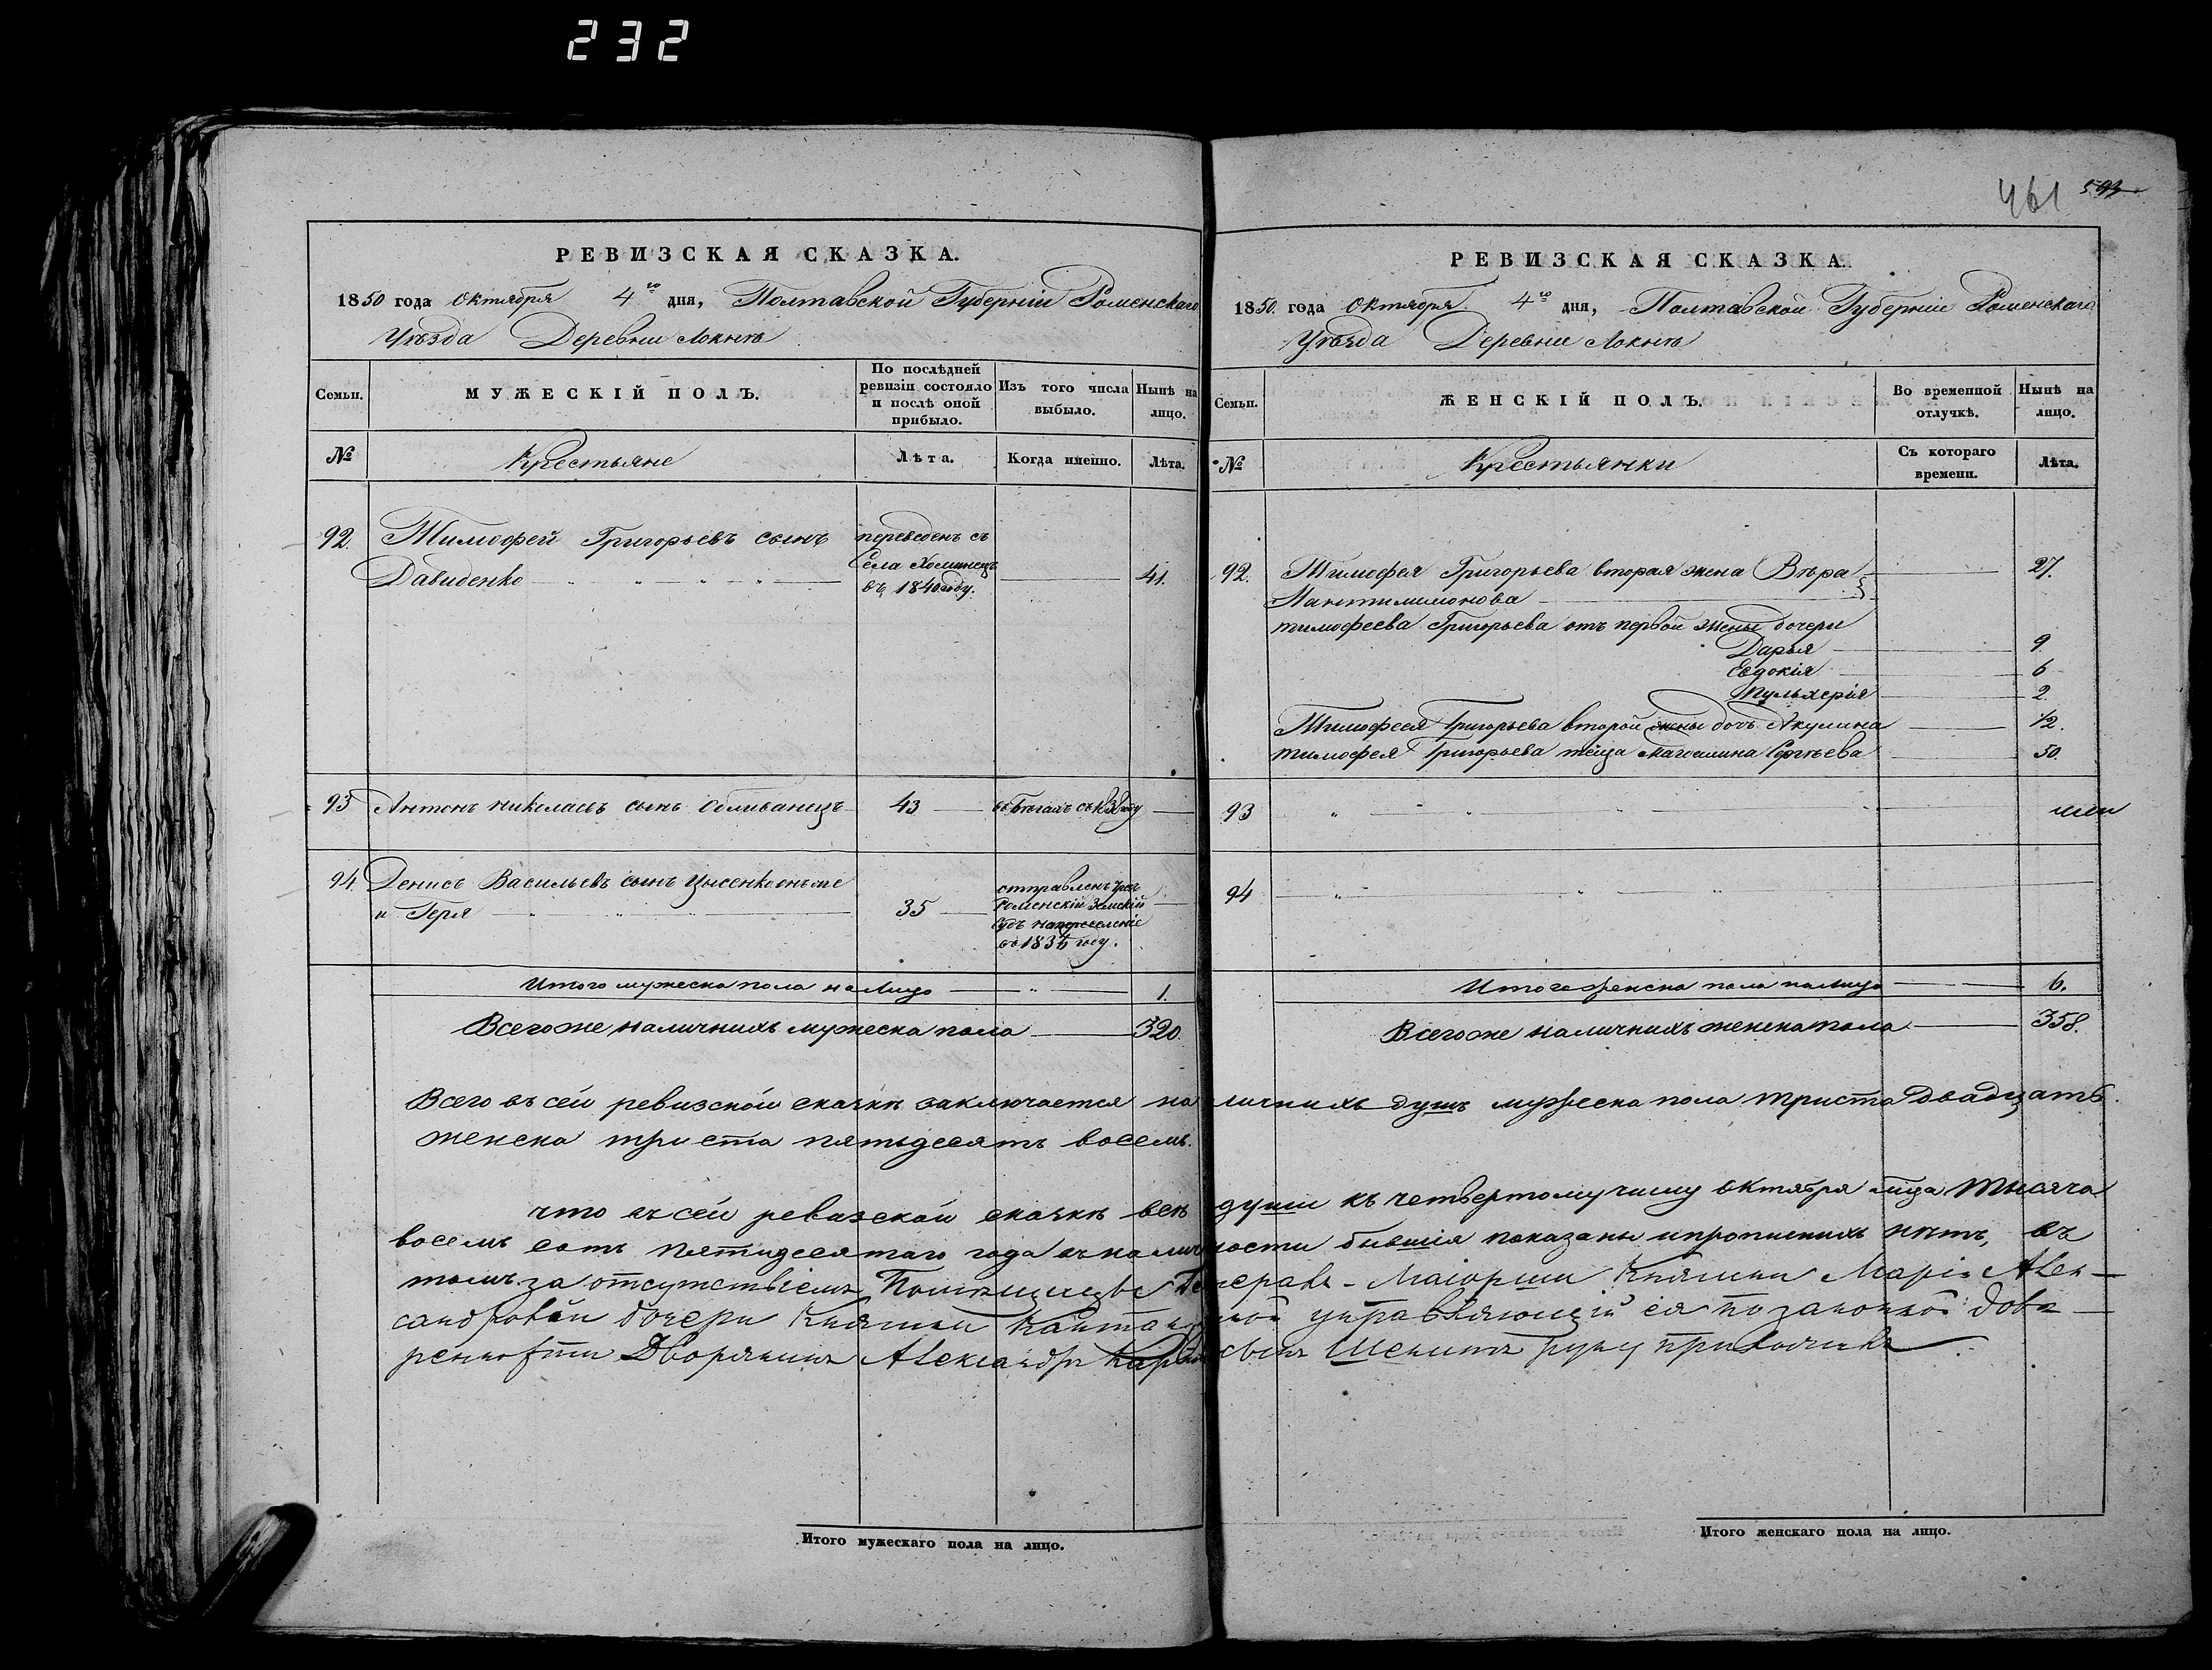 232
461 593
РЕВИЗСКАЯ СКАЗКА.
1850 года Октября 4го дня, Полтавской Губерніи Роменскаго
Уѣзда Деревни Локнѣ
Семьи.
МУЖЕСКІЙ ПОЛЪ.
По послѣдней ревизіи состояло и послѣ оной прибыло.
Изъ того числа выбыло.
Нынѣ на лицо.
№
Крестьяне
Лѣта.
Когда именно.
Лѣта.
92. Тимофей Григорьевъ сынъ переведенъ съ
Давиденко села Хоминецъ 41.
въ 1840 году.
93 Антонъ Николаевъ сынъ 43 въ бѣгахъ съ году
94. Денисъ Васильевъ сынъ онъ же отправленъ чрез
и Геря 35 Роменскій Земскій
судъ на поселеніе
въ 1834 году.
Итого мужеска пола на лицо 1.
Всего же наличнихъ мужеска пола 320.
РЕВИЗСКАЯ СКАЗКА.
1850. года Октября 4го дня, Полтавской Губерніи Роменскаго
Уѣзда Деревни Локнѣ
Семьи.
ЖЕНСКІЙ ПОЛЪ.
Во временной отлучкѣ.
Нынѣ на лицо.
№
Крестьянки
Съ котораго времени.
Лѣта.
92. Тимофея Григорьева вторая жена Вѣра 27.
Пантилимонова
Тимофеева Григорьева отъ первой жены дочери
Дарья 9
Евдокія 6
Пульхерія 2.
Тимофеея Григорьева второй жены дочъ Акулина 1/2.
Тимофея Григорьева теща Магдалина Сергѣева 50.
93
94
Итого женска пола на лицо 6.
Всего же наличнихъ женска пола 358.
Всего въ сей ревизской сказкѣ заключается наличнихъ душъ мужеска пола триста двадцать.
женска триста пятьдесятъ восемь.
что въ сей ревизской сказкѣ всѣ души къ четвертому числу октября мца тысяча
восемь сотъ пятидесятаго года въ наличности бывшія показаны и прописнихъ нѣтъ, въ
томъ за отсутствіемъ Помѣщицы Генералъ-Маіорши Княгини Маріи Алек-
сандровой дочери Княгини управляющій ея по законной дове-
ренности Дворянинъ Александръ сынъ руку приложилъ.
Итого мужескаго пола на лицо.
Итого женскаго пола на лицо.